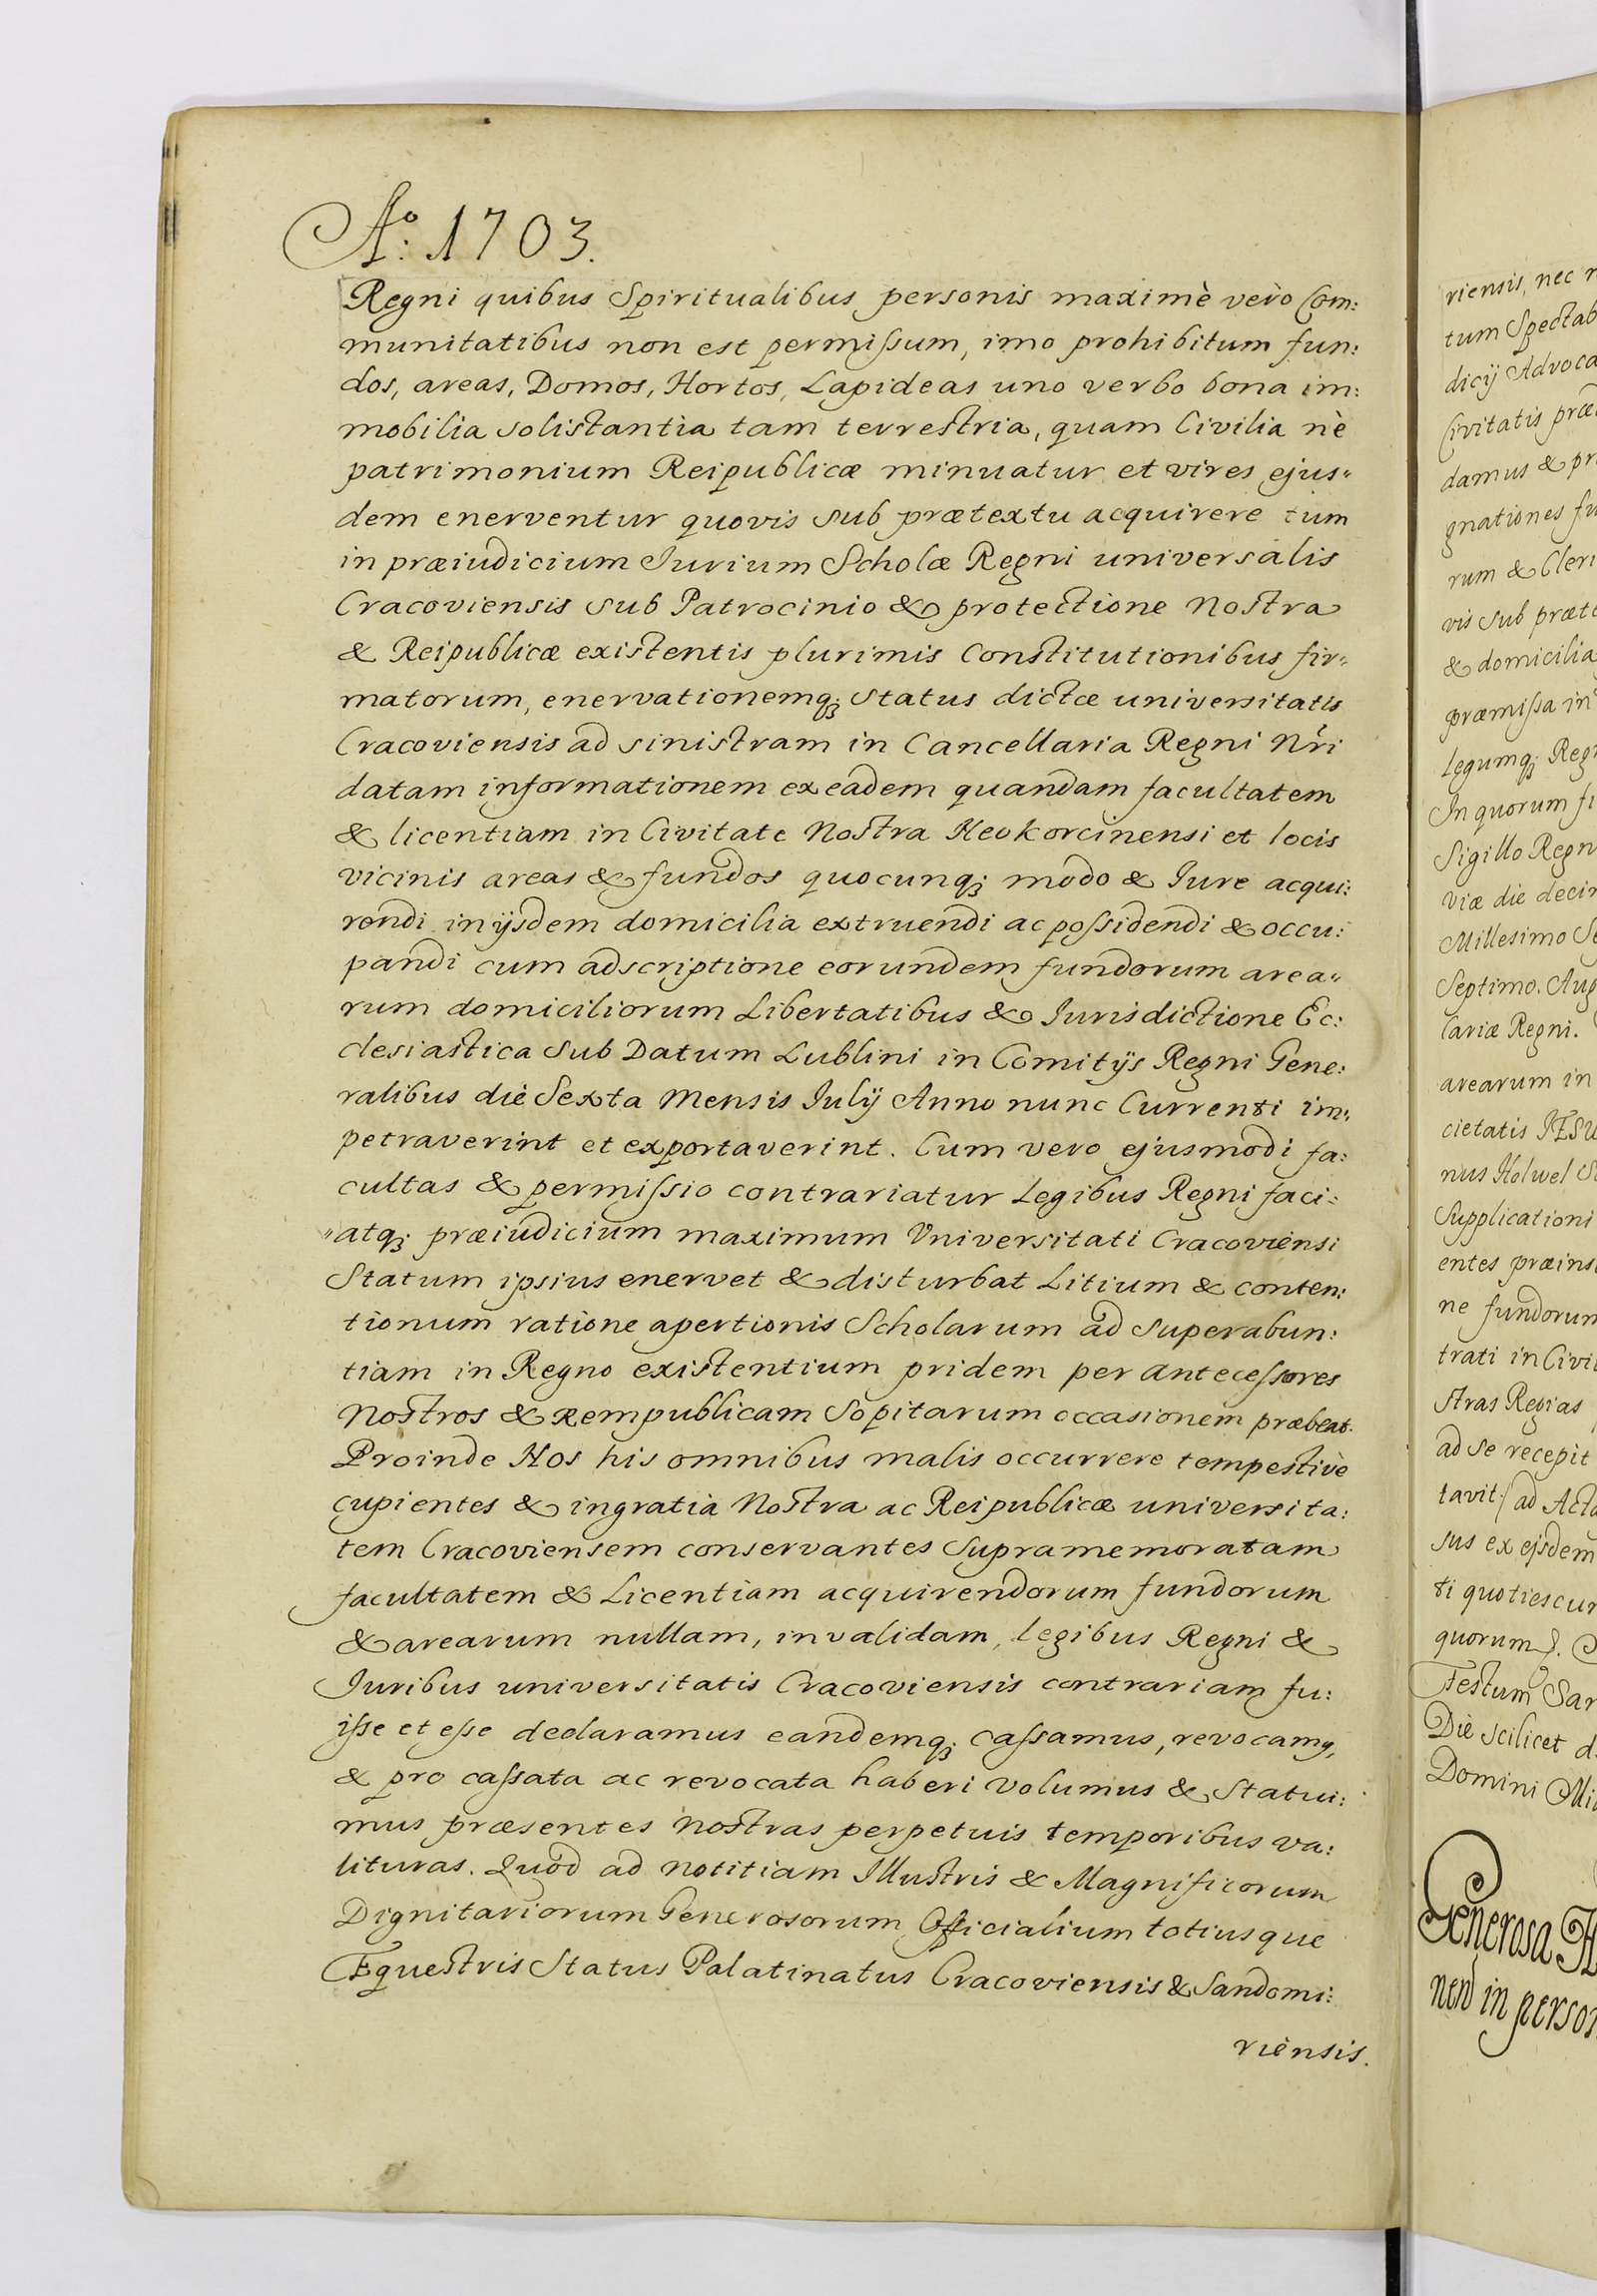 Aº: 1703.
Regni quibus Spiritualibus personis maximè verò Com:
munitatibus non est permissum, imo prohibitum fun:
dos, areas, Domos, Hortos, Lapideas uno verbo bona im:
mobilia solistantia tam terrestria, quam Civilia nè
patrimonium Reipublicæ minuatur et vires ejus„
dem enerventur quovis sub prætextu acquirere tum
in præiudicium Iurium Scholæ Regni universalis
Cracoviensis sub Patrocinio & protectione Nostra
& Reipublicæ existentis plurimis Constitutionibus fir„
matorum, enervationemq; status dictæ universitatis
Cracoviensis ad sinistram in Cancellaria Regni Nri
datam informationem ex eadem quandam facultatem
& licentiam in Civitate Nostra Neokorcinensi et locis
vicinis areas & fundos quocunq; modo & Iure acqui:
rendi in ijsdem domicilia extruendi ac possidendi & occu:
pandi cum adscriptione eorundem fundorum area„
rum domiciliorum Libertatibus & Iurisdictione Ec:
clesiastica sub Datum Lublini in Comitijs Regni Gene:
ralibus diè Sexta Mensis Iulij Anno nunc Currenti im„
petraverint et exportaverint. Cum vero ejusmodi fa:
cultas & permissio contrariatur Legibus Regni faci:
„atq; præiudicium maximum Universitati Cracoviènsi
Statum ipsius enervet & disturbat Litium & conten:
tionum ratione apertionis Scholarum ad superabun:
tiam in Regno existentium pridem per antecessores
Nostros & Rempublicam Sopitarum occasionem præbeat.
Proinde Nos his omnibus malis occurrere tempestivè
cupientes & in gratia Nostra ac Reipublicæ universita:
tem Cracoviensem conservantes supramemoratam
facultatem & Licentiam acquirendorum fundorum
& arearum nullam, invalidam, legibus Regni &
Iuribus universitatis Cracoviensis contrariam fu:
isse et esse declaramus eandemq; cassamus, revocamy,
& pro cassata ac revocata haberi volumus & Statui:
mus præsentes Nostras perpetuis temporibus va:
lituras. Quod ad notitiam Illustris & Magnificorum
Dignitariorum Generosorum Officialium totiusque
Equestris Status Palatinatus Cracoviensis & Sandomi:
riènsis.
riensis, nec
tum Spectab
dicij Advoca
Civitatis præ
damus & pr
gnationes fu
rum & Cleri
vis sub præte
& domicilia
præmissa in
Legumq; Regn
In quorum fi
Sigillo Regn
viæ die decim
Millesimo Se
Septimo. Aug
lariæ Regni.
arearum in
cietatis IESU
nus Holwel S
Supplicationi
entes præins
ne fundorum
trati in Civit
stras Regias
ad se recepit
tavit ad Acta
sus ex ejsdem
ti quoties cun
quorum
Festum San
Diè scilicet d
Domini Mi
Generosa
nen in person